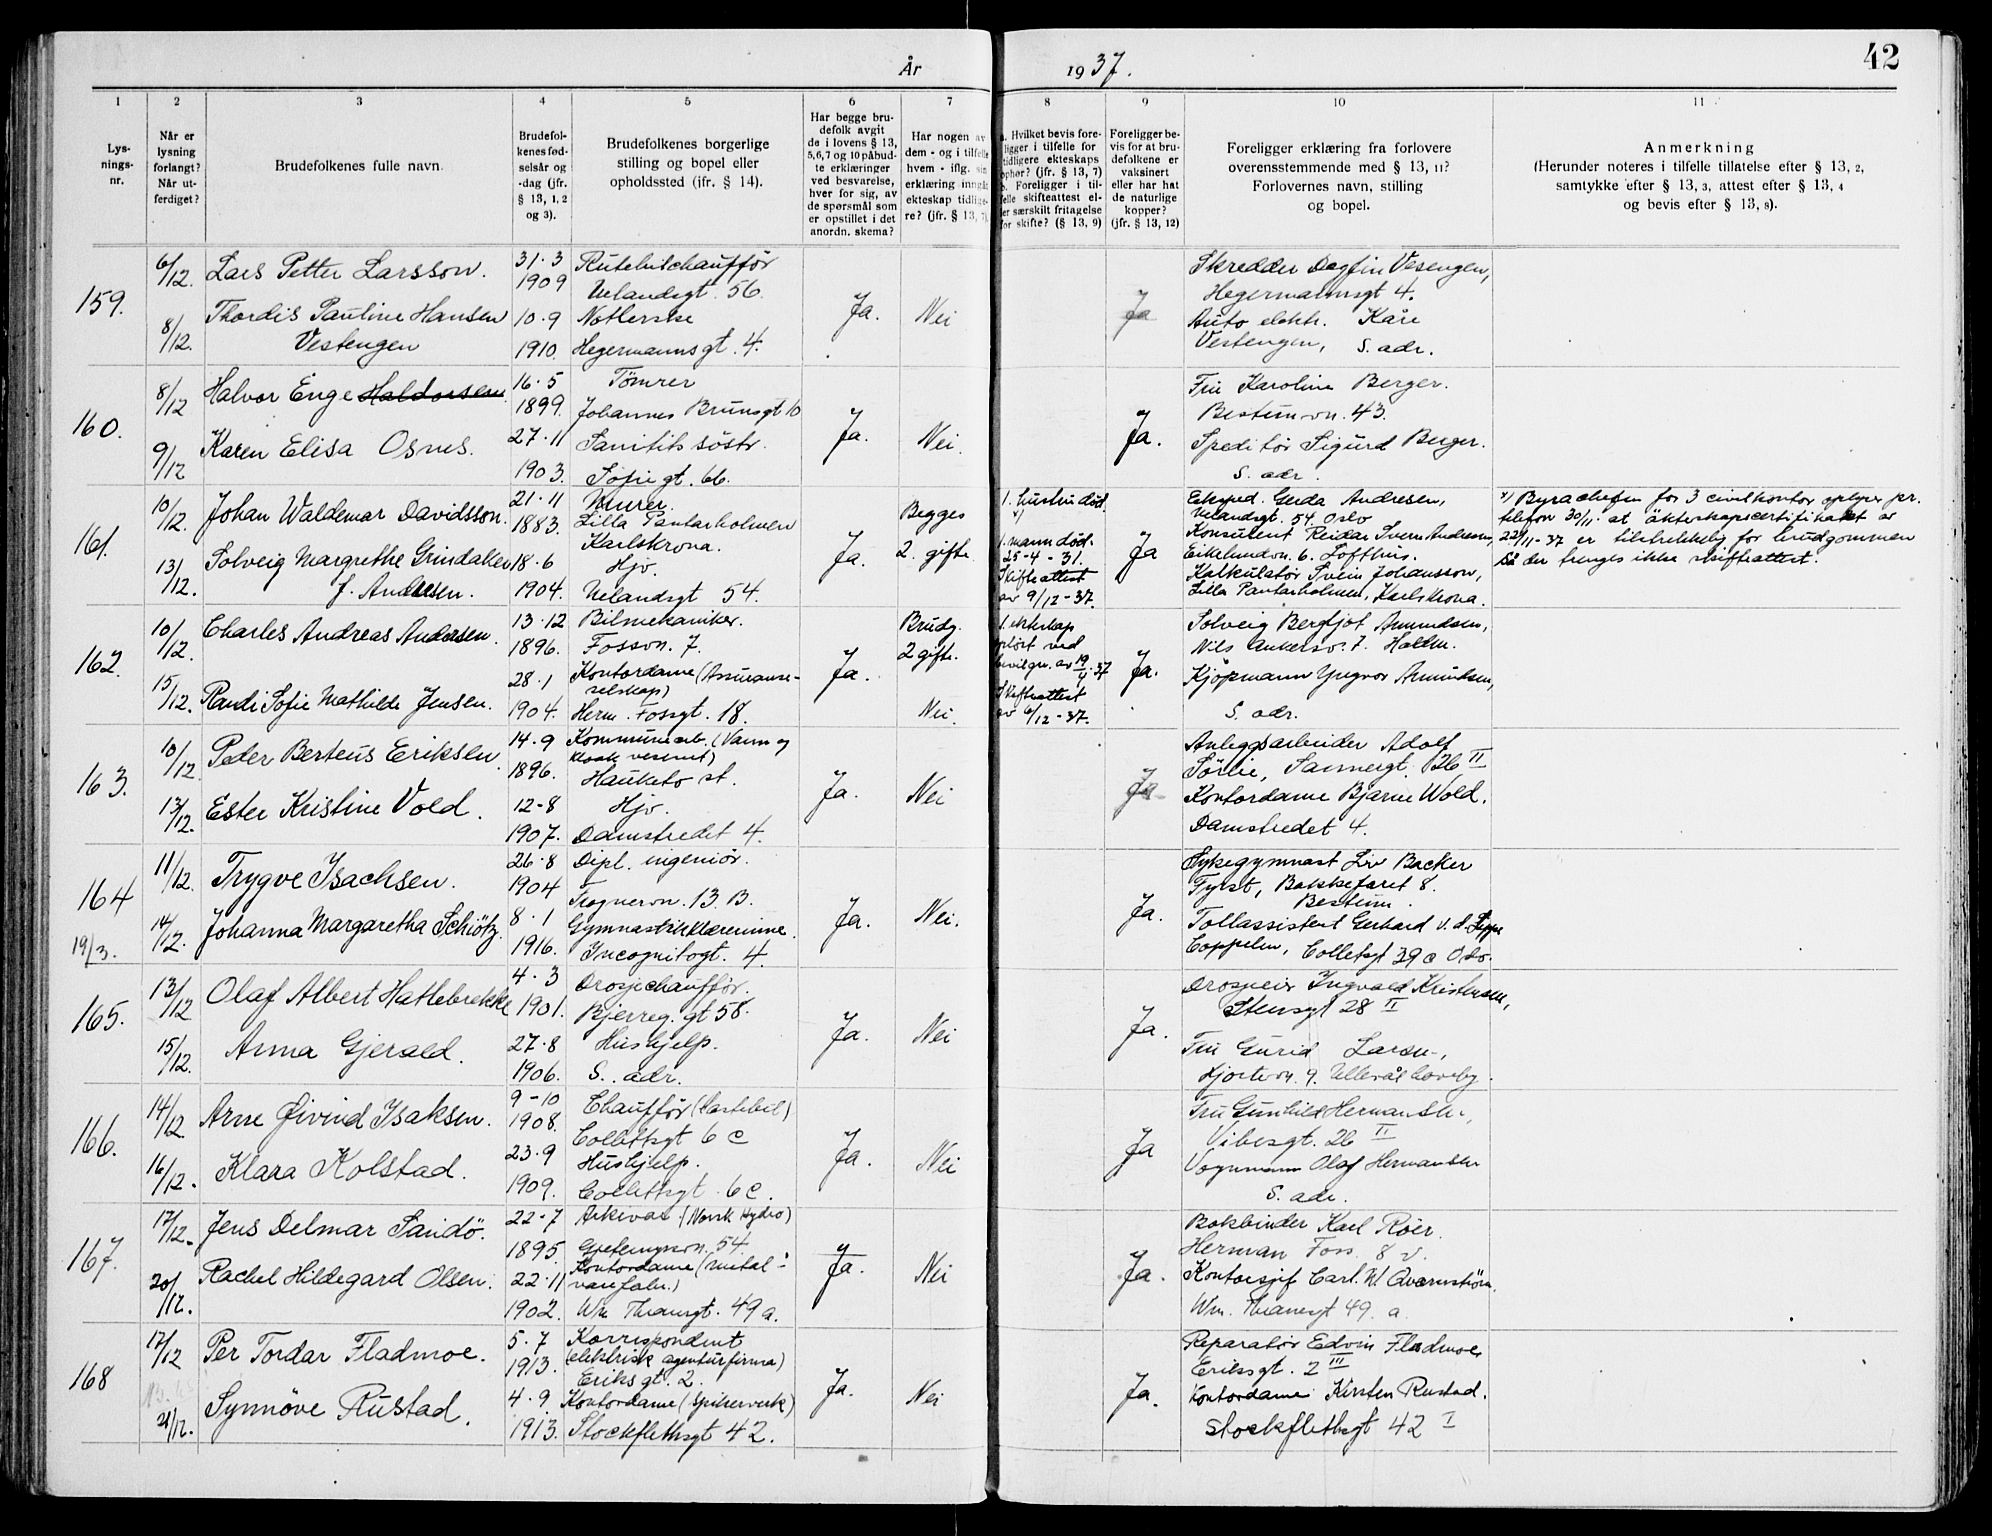 År 1937.
42
1 2 3 4 5 6 7 8 9 10 11
Lys-
nings-
nr.
Når er
lysning
forlangt?
Når ut-
ferdiget?
Brudefolkenes fulle navn.
Brudefol-
kenes fød-
selsår og
-dag (jfr.
§ 13, 1, 2
og 3).
Brudefolkenes borgerlige
stilling og bopel eller
opholdssted (jfr. § 14).
Har begge bru-
defolk avgit
de i lovens § 13,
5,6,7 og 10 påbud-
te erklæringer
ved besvarelse,
hver for sig, av
de spørsmål som
er opstillet i det
anordn. skema?
Har nogen av
dem - og i tilfelle
hvem - iflg. sin
erklæring inngåt
ekteskap tidlige-
re? (jfr. § 13, 7).
a. Hvilket bevis fore-
ligger i tilfelle for
tidligere ekteskaps
ophør? (jfr. § 13, 7)
b. Foreligger i til-
felle skifteattest el-
ler særskilt fritagelse
for skifte? (§ 13, 9)
Foreligger be-
vis for at bru-
defolkene er
vaksinert
eller har hat
de naturlige
kopper?
(jfr. § 13, 12)
Foreligger erklæring fra forlovere
overensstemmende med § 13, 11?
Forlovernes navn, stilling
og bopel.
Anmerkning
(Herunder noteres i tilfelle tillatelse efter § 13, 2,
samtykke efter § 13, 3, attest efter § 13, 4
og bevis efter § 13, 8).
159.
6/12.
8/12.
Lars Petter Larsson.
Thordis Pauline Hansen
Vestengen
31.3
1909
10.9
1910.
Rutebilchaufför
Uelandsgt. 56.
Hegermannsgt. 4.
Ja.
Nei
Ja
Skredder Dagfin Vesengen,
Hegermannsgt 4.
Auto elektr. Kåre
Vestengen, S. adr.
160.
8/12
9/12
Halvor Enge Haldorsen.
Karen Elisa Osnes.
16.5
1899.
27.11
1903.
Tömrer
Johannes Brunsgt 10
Sanitets söstr.
Sofie gt. 66.
Ja.
Nei.
Ja.
Fru Karoline Berger.
Bestumvn. 43.
Speditör Sigurd Berger.
S. adr.
161.
10/12.
13/12.
Johan Waldemar Davidsson.
Solveig Margrethe Grindaker
f. Andresen.
21.11
1883.
18.6
1904.
Murer.
Lilla Pantarholmen
Karlskrona.
Hjv.
Uelandsgt 54.
Ja.
Begges
2. gifte
1. hustru död.
x)
1. mann död.
25-4-31.
Skifteattest
av 9/12-37.
Ja
Eksped. Gerda Andresen,
Uelandsgt. 54. Oslo
Konsulent Reidar Sven Andresen,
Eikelundvn. 6. Lofthus.
Kalkulatör Svein Johansson,
Lilla Pantarholmen, Karlskrona.
x) Byråchefen for 3 civilkontor oplyser pr.
telefon 30/11. at äkteskapscertifikatet av
22/11-37 er tilstrekkelig for brudgommen
Så der trenges ikke skifteattest.
162.
10/12.
15/12.
Charles Andreas Andersen.
Randi Sofie Mathilde Jensen.
13.12
1896.
28.1
1904.
Bilmekaniker.
Fossvn. 7.
Kontordame (Assuranse-
selskap)
Herm. Fossgt. 18.
Ja.
Brudg.
2 gifte.
Nei.
1. ekteskap
oplöst ved
bevilgn. av 19/4.37
Skifteattest
av 6/12-37.
Ja.
Solveig Bergljot Amundsen,
Nils Ankersv. 7. Holm.
Kjöpmann Yngvar Amundsen,
S. adr.
163.
10/12.
13/12.
Peder Berteus Eriksen.
Ester Kristine Vold.
14.9
1896.
12-8
1907.
Kommunearb. (Vann og
kloak vesenet)
Hauketo st.
Hjv.
Damstredet 4.
Ja.
Nei
Ja.
Anleggsarbeider Adolf
Sörlie, Sannergt. 26 II
Kontordame Bjarne Wold.
Damstredet 4.
164
19/3.
11/12.
14/12.
Trygve Isachsen.
Johanna Margaretha Schiötz.
26.8
1904
8.1
1916.
Dipl. ingeniör.
Frognervn. 13. B.
Gymnastikklærerinne.
Incognitogt. 4.
Ja.
Nei.
Ja.
Sykegymnast Liv Backer
Bakkefaret 8.
Bestum.
Tollassistent Gerhard v. d. Lippe
Coppelen, Colletsgt 39 c Oslo.
165.
13/12
15/12.
Olaf Albert Hatlebrekke
Anna Gjerald.
4.3
1901.
27.8
1906.
Drosjechaufför.
Bjerreg. gt 58.
Hushjelp.
S. adr.
Ja.
Nei
Ja.
Drosjeeier Ingvald Kristensen,
Stensgt 28 II
Fru Gurid Larsen,
Hjortevn. 9. Ullevål haveby.
166.
14/12
16/12.
Arne Øivind Isaksen.
Klara Kolstad.
9-10
1908.
23.9
1909.
Chaufför (Lastebil)
Collettsgt 6 c
Hushjelp.
Collettsgt. 6 c.
Ja.
Nei
Ja
Fru Gunhild Hermansen,
Vibesgt. 26 II
Vognmann Olaf Hermansen
S. adr.
167.
17/12.
20/12.
Jens Delmar Sandö.
Rachel Hildegard Olsen.
22-7
1895
22.11
1902.
Arkivar (Norsk Hydro)
Gjetemyrsvn. 54
Kontordame (metal-
varefabr.)
Wm Thranesgt. 49 a.
Ja.
Nei
Ja.
Bokbinder Karl Röer.
Herman Foss. 8 v.
Kontorsjef Carl. W. Qvarnström
Wm. Thranesgt 49. a
168
17/12
21/12.
Per Tordar Fladmoe.
Synnöve Rustad.
5.7
1913.
4.9.
1913.
Korrespondent
(elektrisk agenturfirma)
Eriks gt. 2.
Kontordame (Spikerverk)
Stockflethsgt 42.
Ja.
Nei
Ja.
Reparatör Edvin Fladmoe
Eriksgt. 2 III
Kontordame Kirsten Rustad.
Stockflethsgt 42 I